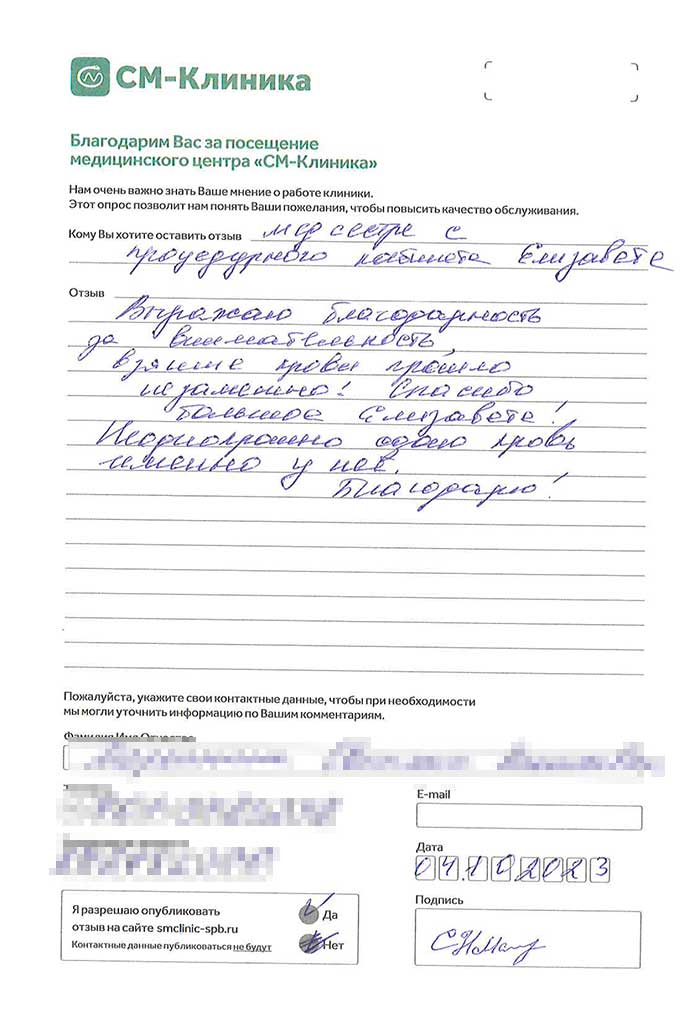 СМ-Клиника
Благодарим Вас за посещение
медицинского центра «СМ-Клиника»
Нам очень важно знать Ваше мнение о работе клиники.
Этот опрос позволит нам понять Ваши пожелания, чтобы повысить качество обслуживания.
Кому Вы хотите оставить отзыв медсестре с
процедурного кабинета Елизавете
Отзыв
Выражаю благодарность
за внимательность,
взятие крови прошло
незаменно! Спасибо
большое Елизавете!
Неоднократно сдаю кровь
именно у неё.
Благодарю!
Пожалуйста, укажите свои контактные данные, чтобы при необходимости
мы могли уточнить информацию по Вашим комментариям.
Фамилия Имя Отчество
E-mail
Дата
04.10 2023
Я разрешаю опубликовать
отзыв на сайте smclinic-spb.ru
Контактные данные публиковаться не будут
Да
Нет
Подпись